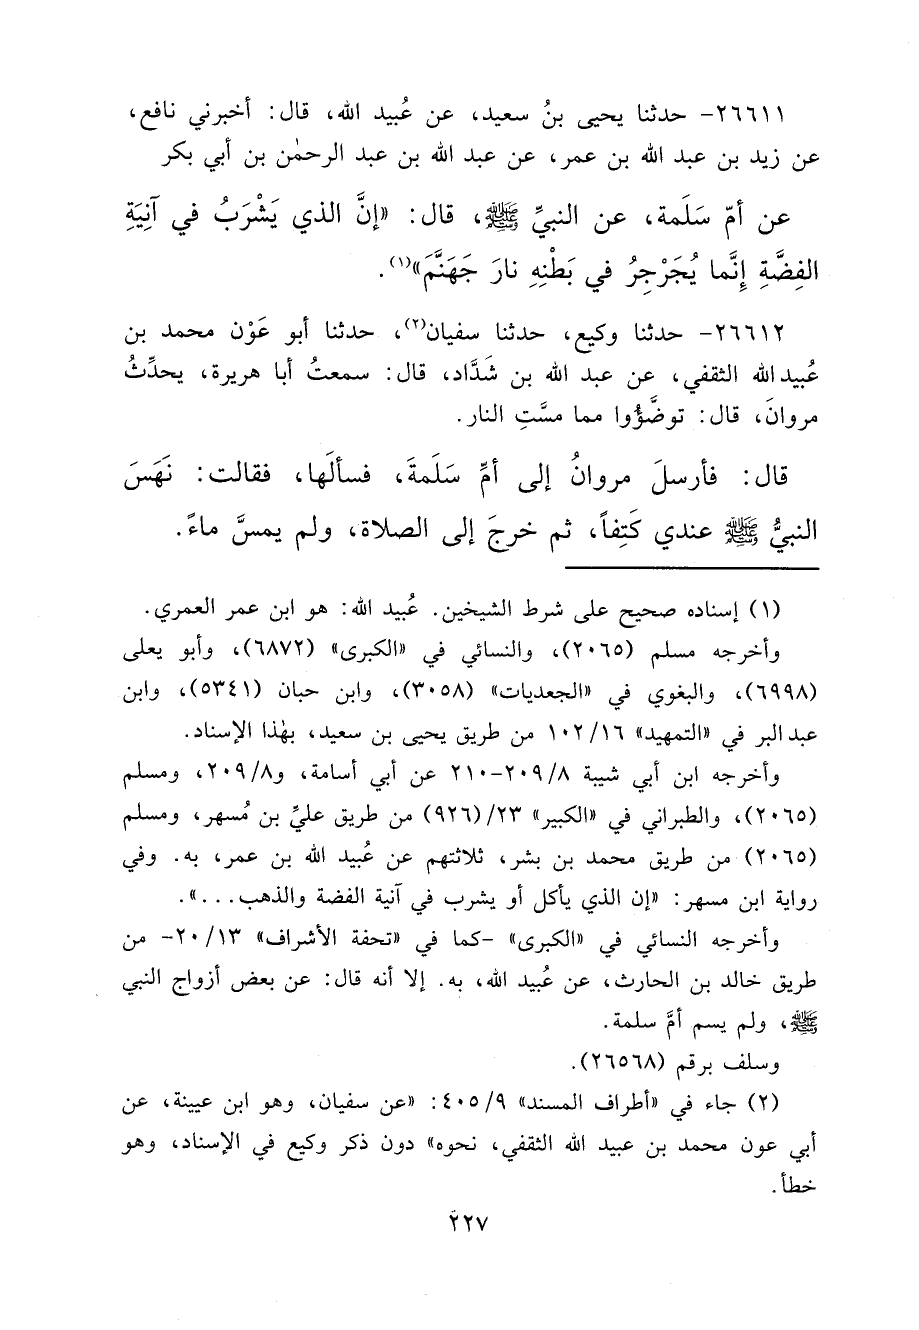 ٢٦٦١١- حدثنا يحيى بنُ سعيد، عن عُبيد الله، قال: أخبرني نافع،
عن زيد بن عبد الله بن عمر، عن عبد الله بن عبد الرحمٰن بن أبي بكر
عن أمّ سَلَمة، عن النبيِّ ﷺ، قال: «إنَّ الذي يَشْرَبُ في آنِيَةِ
الفِضَّةِ إِنَّما يُجَرْجِرُ في بَطْنِهِ نارَ جَهَنَّمَ»(١).
٢٦٦١٢- حدثنا وكيع، حدثنا سفيان(٢)، حدثنا أبو عَوْن محمد بن
عُبيد الله الثقفي، عن عبد الله بن شَدَّاد، قال: سمعتُ أبا هريرة، يحدِّثُ
مروانَ، قال: توضَّؤُوا مما مسَّتِ النار.
قال: فأرسلَ مروانُ إلى أمِّ سَلَمةَ، فسألَها، فقالت: نَهَسَ
النبيُّ ﷺ عندي كَتِفاً، ثم خرجَ إلى الصلاة، ولم يمسَّ ماءً.
(١) إسناده صحيح على شرط الشيخين. عُبيد الله: هو ابن عمر العمري.
وأخرجه مسلم (٢٠٦٥)، والنسائي في «الكبرى» (٦٨٧٢)، وأبو يعلى
(٦٩٩٨)، والبغوي في «الجعديات» (٣٠٥٨)، وابن حبان (٥٣٤١)، وابن
عبد البر في «التمهيد» ١٠٢/١٦ من طريق يحيى بن سعيد، بهٰذا الإسناد.
وأخرجه ابن أبي شيبة ٢٠٩/٨-٢١٠ عن أبي أسامة، و٢٠٩/٨، ومسلم
(٢٠٦٥)، والطبراني في «الكبير» ٢٣/(٩٢٦) من طريق عليِّ بن مُسهر، ومسلم
(٢٠٦٥) من طريق محمد بن بشر، ثلاثتهم عن عُبيد الله بن عمر، به. وفي
رواية ابن مسهر: «إن الذي يأكل أو يشرب في آنية الفضة والذهب...».
وأخرجه النسائي في «الكبرى» -كما في «تحفة الأشراف» ٢٠/١٣- من
طريق خالد بن الحارث، عن عُبيد الله، به. إلا أنه قال: عن بعض أزواج النبي
ﷺ، ولم يسم أمَّ سلمة.
وسلف برقم (٢٦٥٦٨).
(٢) جاء في «أطراف المسند» ٤٠٥/٩: «عن سفيان، وهو ابن عيينة، عن
أبي عون محمد بن عبيد الله الثقفي، نحوه» دون ذكر وكيع في الإسناد، وهو
خطأ.
٢٢٧